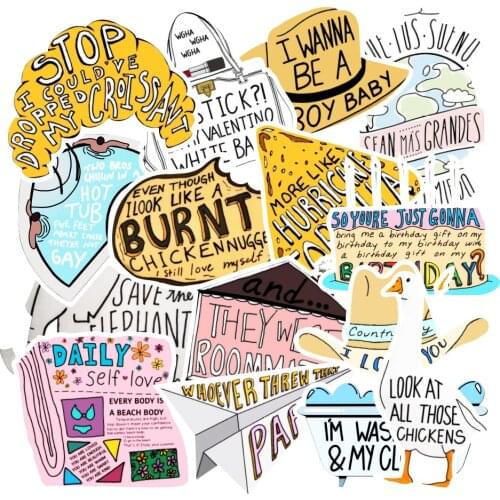 STOP
I COULD'VE
DROPPED
MY CROISSANT
WGHA
WGHA
WGHA
STICK?!
MY VALENTINO
WHITE BA
I WANNA
BE A
BOY BABY
EAN MÁS GRANDES
TWO BROS
CHILLIN IN A
HOT
TUB
FIVE FEET
APART CAUSE
THEY'RE NOT
GAY
EVEN THOUGH
I LOOK LIKE A
BURNT
CHICKEN NUGGE
I still love myself
MORE LIKE
HURRICA
SO YOU'RE JUST GONNA
bring me a birthday gift on my
birthday to my birthday with
a birthday gift
SAVE THE
ELEPHANT
and...
THEY WE
ROOMMA
Country
I LO YOU
DAILY
self love
EVERY BODY IS
A BEACH BODY
WHOEVER THREW THAT
PAP
I'M WAS
& MY CL
LOOK AT
ALL THOSE
CHICKENS